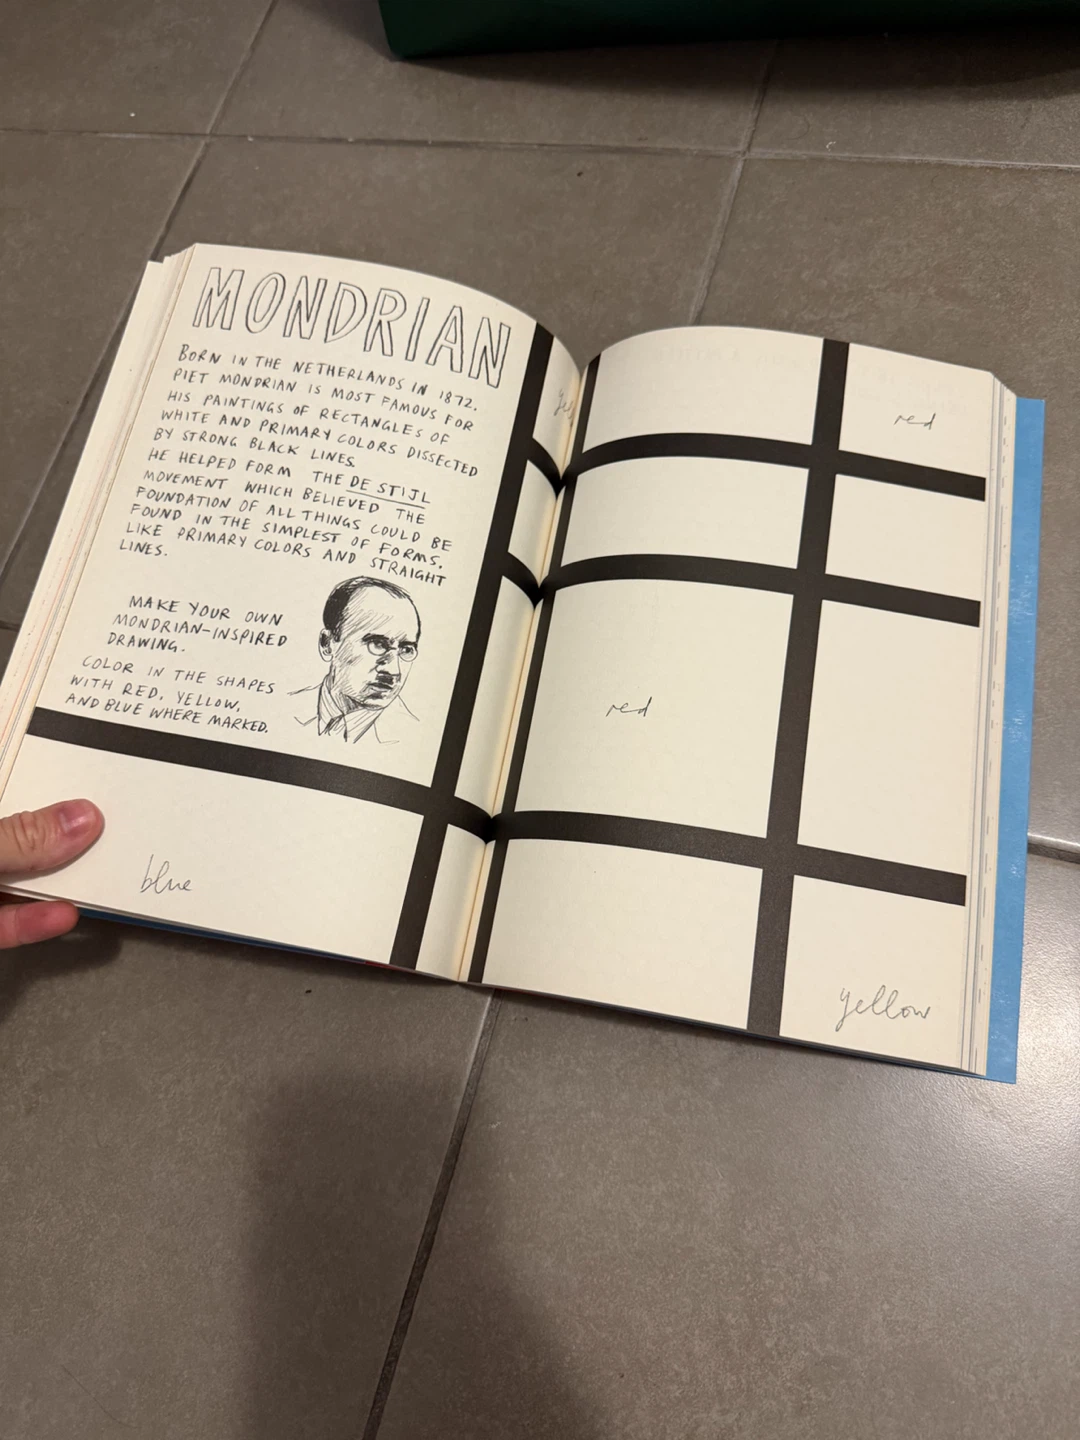 MONDRIAN
BORN IN THE NETHERLANDS IN 1872,
PIET MONDRIAN IS MOST FAMOUS FOR
HIS PAINTINGS OF RECTANGLES OF
WHITE AND PRIMARY COLORS DISSECTED
BY STRONG BLACK LINES.
HE HELPED FORM THE DE STIJL
MOVEMENT WHICH BELIEVED THE
FOUNDATION OF ALL THINGS COULD BE
FOUND IN THE SIMPLEST OF FORMS,
LIKE PRIMARY COLORS AND STRAIGHT
LINES.
MAKE YOUR OWN
MONDRIAN-INSPIRED
DRAWING.
COLOR IN THE SHAPES
WITH RED, YELLOW,
AND BLUE WHERE MARKED.
blue
red
red
yellow